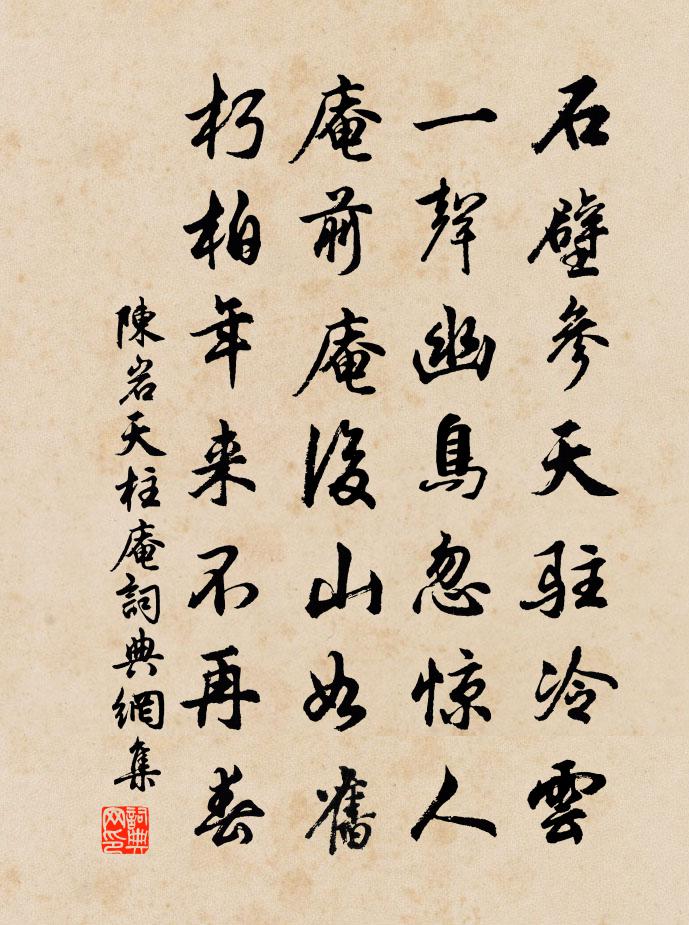 石壁參天駐冷雲
一聲幽鳥忽惊人
庵前庵後山如舊
朽柏年来不再春
陳岩天柱庵詞典網集
詞典网印